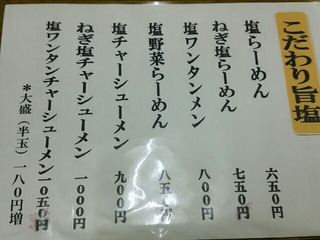 こだわり旨塩
塩らーめん 六五〇円
ねぎ塩らーめん 七五〇円
塩ワンタンメン 八〇〇円
塩野菜らーめん 八五〇円
塩チャーシューメン 九〇〇円
ねぎ塩チャーシューメン 一〇〇〇円
塩ワンタンチャーシューメン 一〇五〇円
＊大盛（半玉）一八〇円増